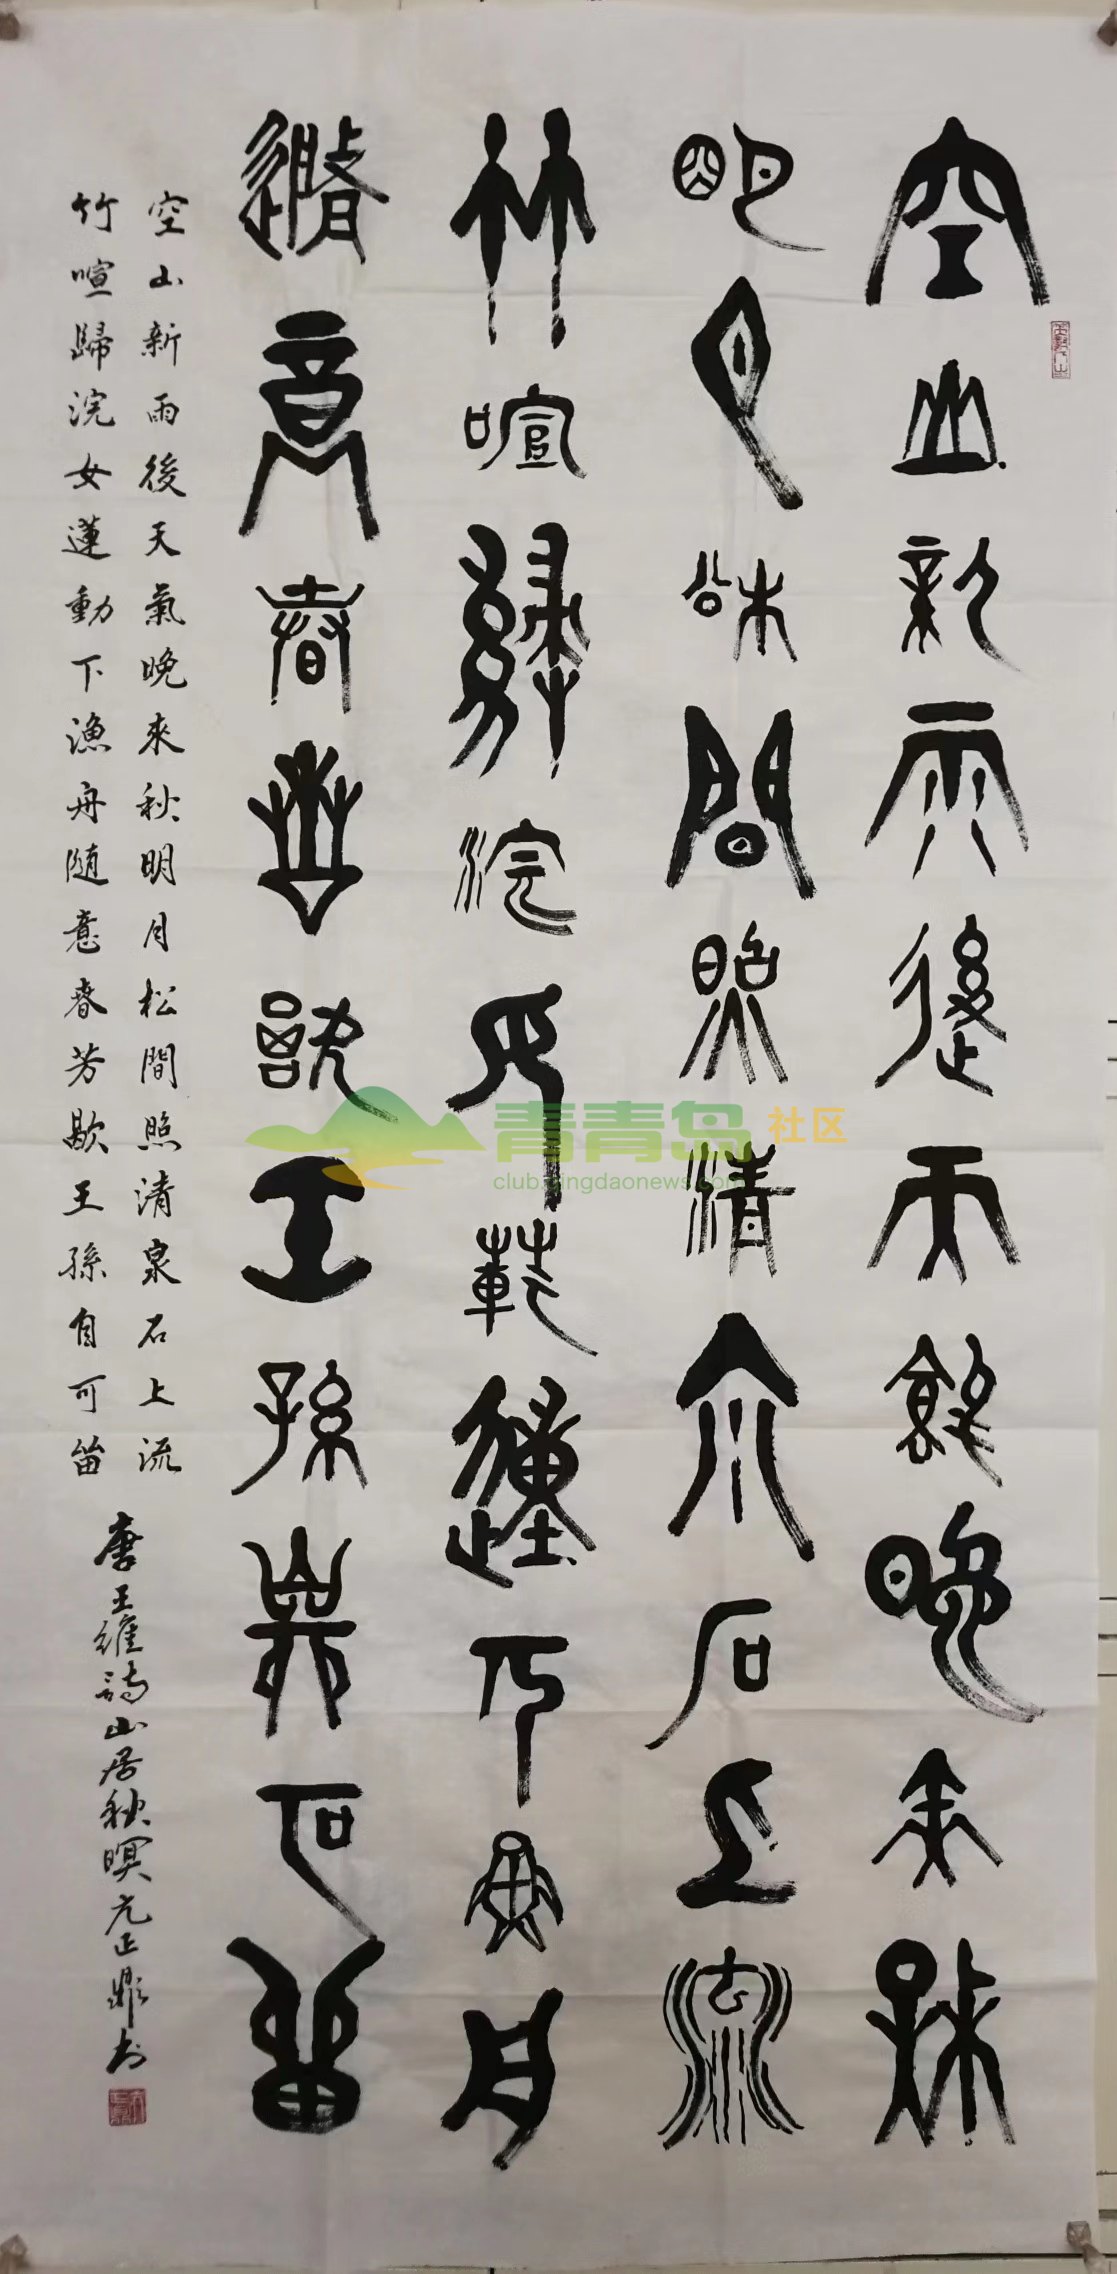 空山新雨後天氣晚來秋
明月松間照清泉石上流
竹喧歸浣女蓮動下漁舟
隨意春芳歇王孫自可留
空山新雨後天氣晚來秋明月松間照清泉石上流
竹喧歸浣女蓮動下漁舟隨意春芳歇王孫自可留
唐王維詩山居秋暝
青青岛社区
club.qingdaonews.com